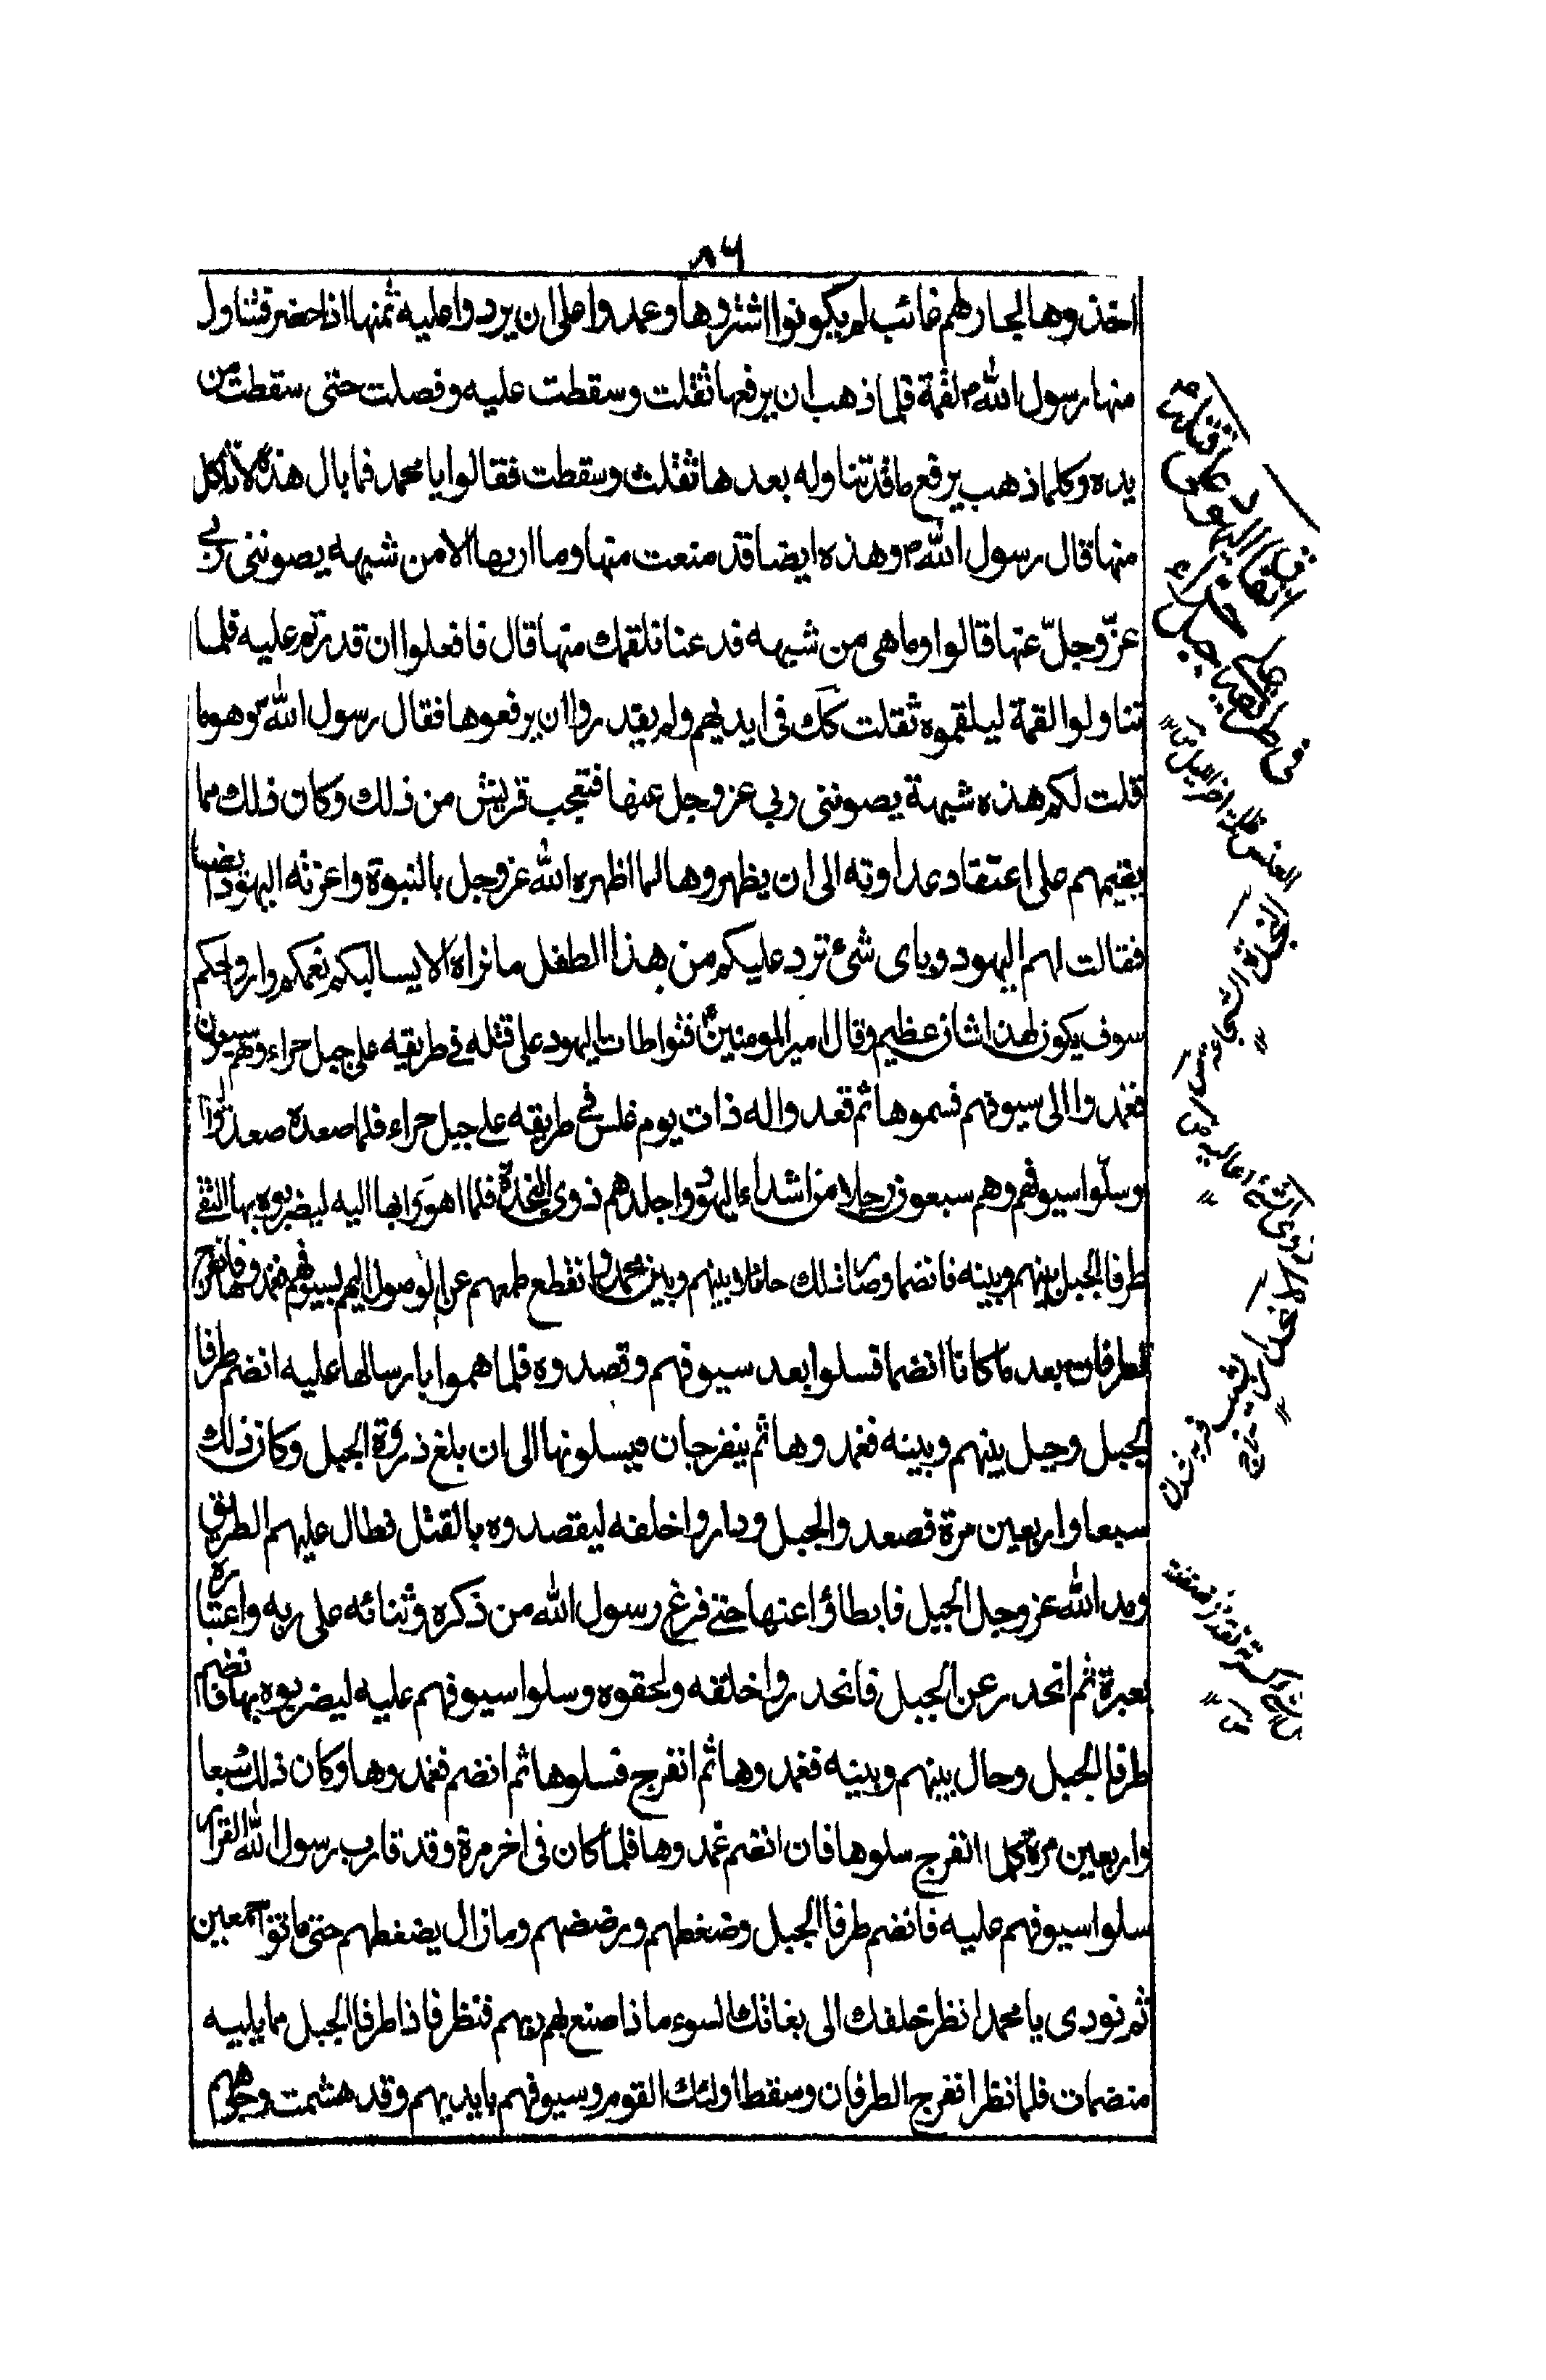 ٨٦
اخذوها لجار لهم غائب لم يكونوا اشتروها وعمدوا على ان يردوا عليه ثمنها اذا حضر فتناول
منها رسول اللهؐ لقمة فلما ذهب ان يرفعها ثقلت وسقطت عليه وفصلت حتى سقطت من
يده وكلما ذهب يرفع ما قد تناوله بعدها ثقلت وسقطت فقالوا يا محمد فما بال هذه لا تاكل
منها قال رسول اللهؐ وهذه ايضا قد منعت منها وما اريها الا من شبهه يصونني ربي
عزّ وجلّ عنها قالوا وما هي من شبهه فدعنا نلقمك منها قال فافعلوا ان قدرتم عليه فلما
تناولوا لقمة ليلقموه ثقلت كك في ايديهم ولم يقدروا ان يرفعوها فقال رسول اللهؐ هو ما
قلت لكم هذه شبهة يصونني ربي عز وجل عنها فتعجب قريش من ذلك وكان ذلك مما
يقيمهم على اعتقاد عداوته الى ان يظهروها لما اظهره الله عز وجل بالنبوة واغرته اليهود ايضا
فقالت لهم اليهود وباى شئ ترد عليكم من هذا الطفل ما نراه الا يسالبكم نعمكم وارواحكم
سوف يكون لهذا شان عظيم وقال امير المومنينؑ فتواطات اليهود على قتله في طريقه على جبل حراء وهم سبعون
فغدوا الى سيوفهم فسموها ثم قعدوا له ذات يوم غلس في طريقه على جبل حراء فلما صعده صعدوا
وسلّوا سيوفهم وهم سبعون رجلا من اشداء اليهود واجلدهم ذوي النجدة فلما اهووا بها اليه ليضربوه بها التقى
طرفا الجبل بينهم وبينه فانضما وصار ذلك حائلا بينهم وبين محمد وانقطع طمعهم عن الوصول اليه بسيوفهم فغمدوها فانفرج
الطرفان بعد ما كانا انضما فسلوا بعد سيوفهم وقصدوه فلما هموا بارسالها عليه انضم طرفا
الجبل وحيل بينهم وبينه فغمدوها ثم ينفرجان فيسلونها الى ان بلغ ذروة الجبل وكان ذلك
سبعا واربعين مرة فصعدوا الجبل وداروا خلفه ليقصدوه بالقتل فطال عليهم الطريق
ومد الله عز وجل الجبل فابطاؤا عنها حتى فرغ رسول الله من ذكره وثنائه على ربه واعتباره
بعبرة ثم انحدر عن الجبل فانحدروا خلفه ولحقوه وسلوا سيوفهم عليه ليضربوه بها فانضم
طرفا الجبل وحال بينهم وبينه فغمدوها ثم انفرج فسلوها ثم انضم فغمدوها وكان ذلك سبعا
واربعين مرة كلما انفرج سلوها فان انضم غمدوها فلما كان في اخر مرة وقد قارب رسول الله القرار
سلوا سيوفهم عليه فانضم طرفا الجبل وضغطهم ورضضهم وما زال يضغطهم حتى ماتوا اجمعين
ثم نودى يا محمد انظر خلفك الى بغاتك السوء ماذا صنع بهم ربهم فنظر فاذا طرفا الجبل مما يليه
منضمان فلما نظر انفرج الطرفان وسقط اولئك القوم وسيوفهم بايديهم وقد هشمت وجوههم
اليهود على قتله
في طريقه على جبل حراء